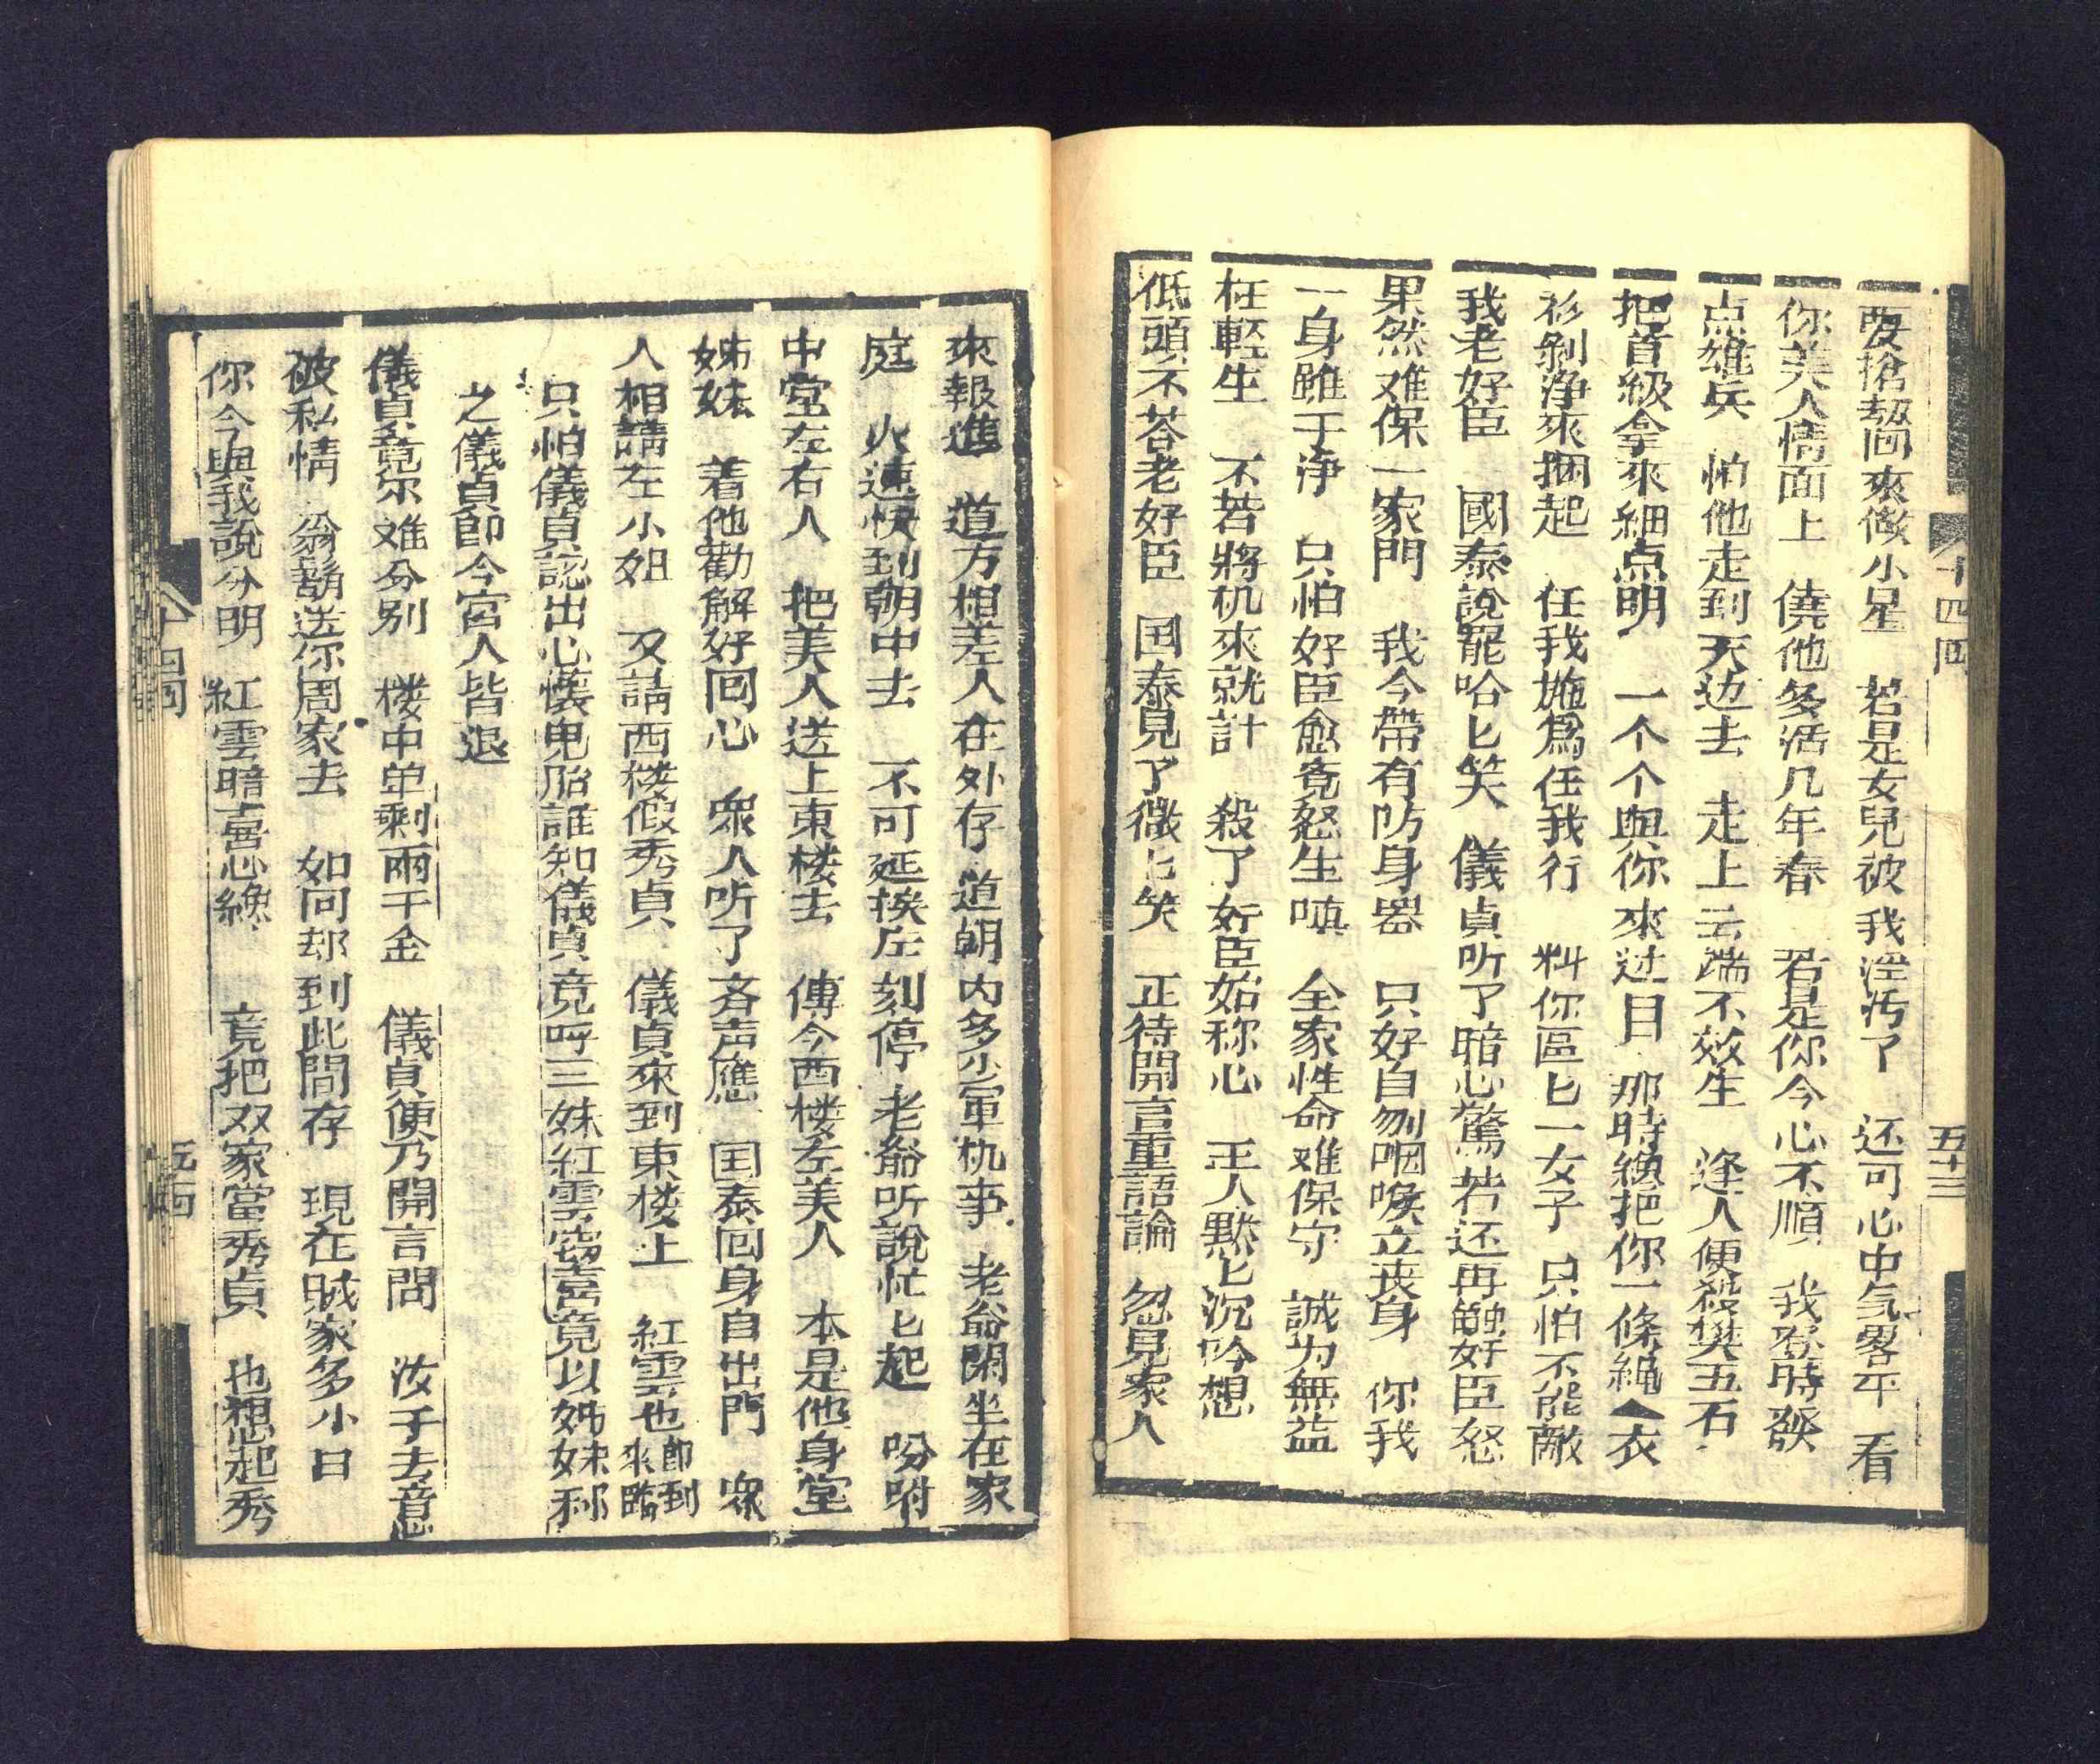 十四回 五十三
要搶刼回來做小星 若是女兒被我淫污了 还可心中気畧平 看
你美人情面上 僥他多活几年春 若是你今心不順 我登時發
点雄兵 怕他走到天边去 走上云端不效生 逢人便殺樊五石
把首級拿來細点明 一个个與你來过目 那時綑把你一條繩 衣
衫剝淨來捆起 任我施爲任我行 料你區匕一女子 只怕不能敵
我老奸臣 國泰說罷哈匕笑 儀貞听了暗心驚 若还再觸奸臣怒
果然难保一家門 我今帶有防身器 只好自刎咽喉立丧身 你我
一身雖干淨 只怕奸臣愈覔怒生嗔 全家性命难保守 誠为無益
枉輕生 不若將机來就計 殺了奸臣始称心 正人黙匕沉吟想
低頭不荅老奸臣 国泰見了微匕笑 正待開言重語論 忽見家人
來報進 道方相差人在外存 道朝內多少軍机事 老爺閑坐在家
庭 火速快到朝中去 不可延挨庄刻停 老爺听說忙匕起 吩咐
中堂左右人 把美人送上東楼去 傳今西楼左美人 本是他身堂
姊妹 着他勸解好回心 衆人听了斉声應 国泰回身自出門 衆
人相請左小姐 又請西楼假秀貞 儀貞來到東楼上 紅雲也即到來臨
只怕儀貞認出心懐鬼胎誰知儀貞竟呼三妹紅雲窃喜竟以姊妹称
之儀貞即令宮人皆退
儀貞竟尔难分别 楼中单剩兩千金 儀貞便乃開言問 汝于去意
破私情 翁鷸送你周家去 如何却到此間存 現在賊家多少日
你今與我說分明 紅雲暗喜心綠 竟把双家當秀貞 也想起秀
十四回